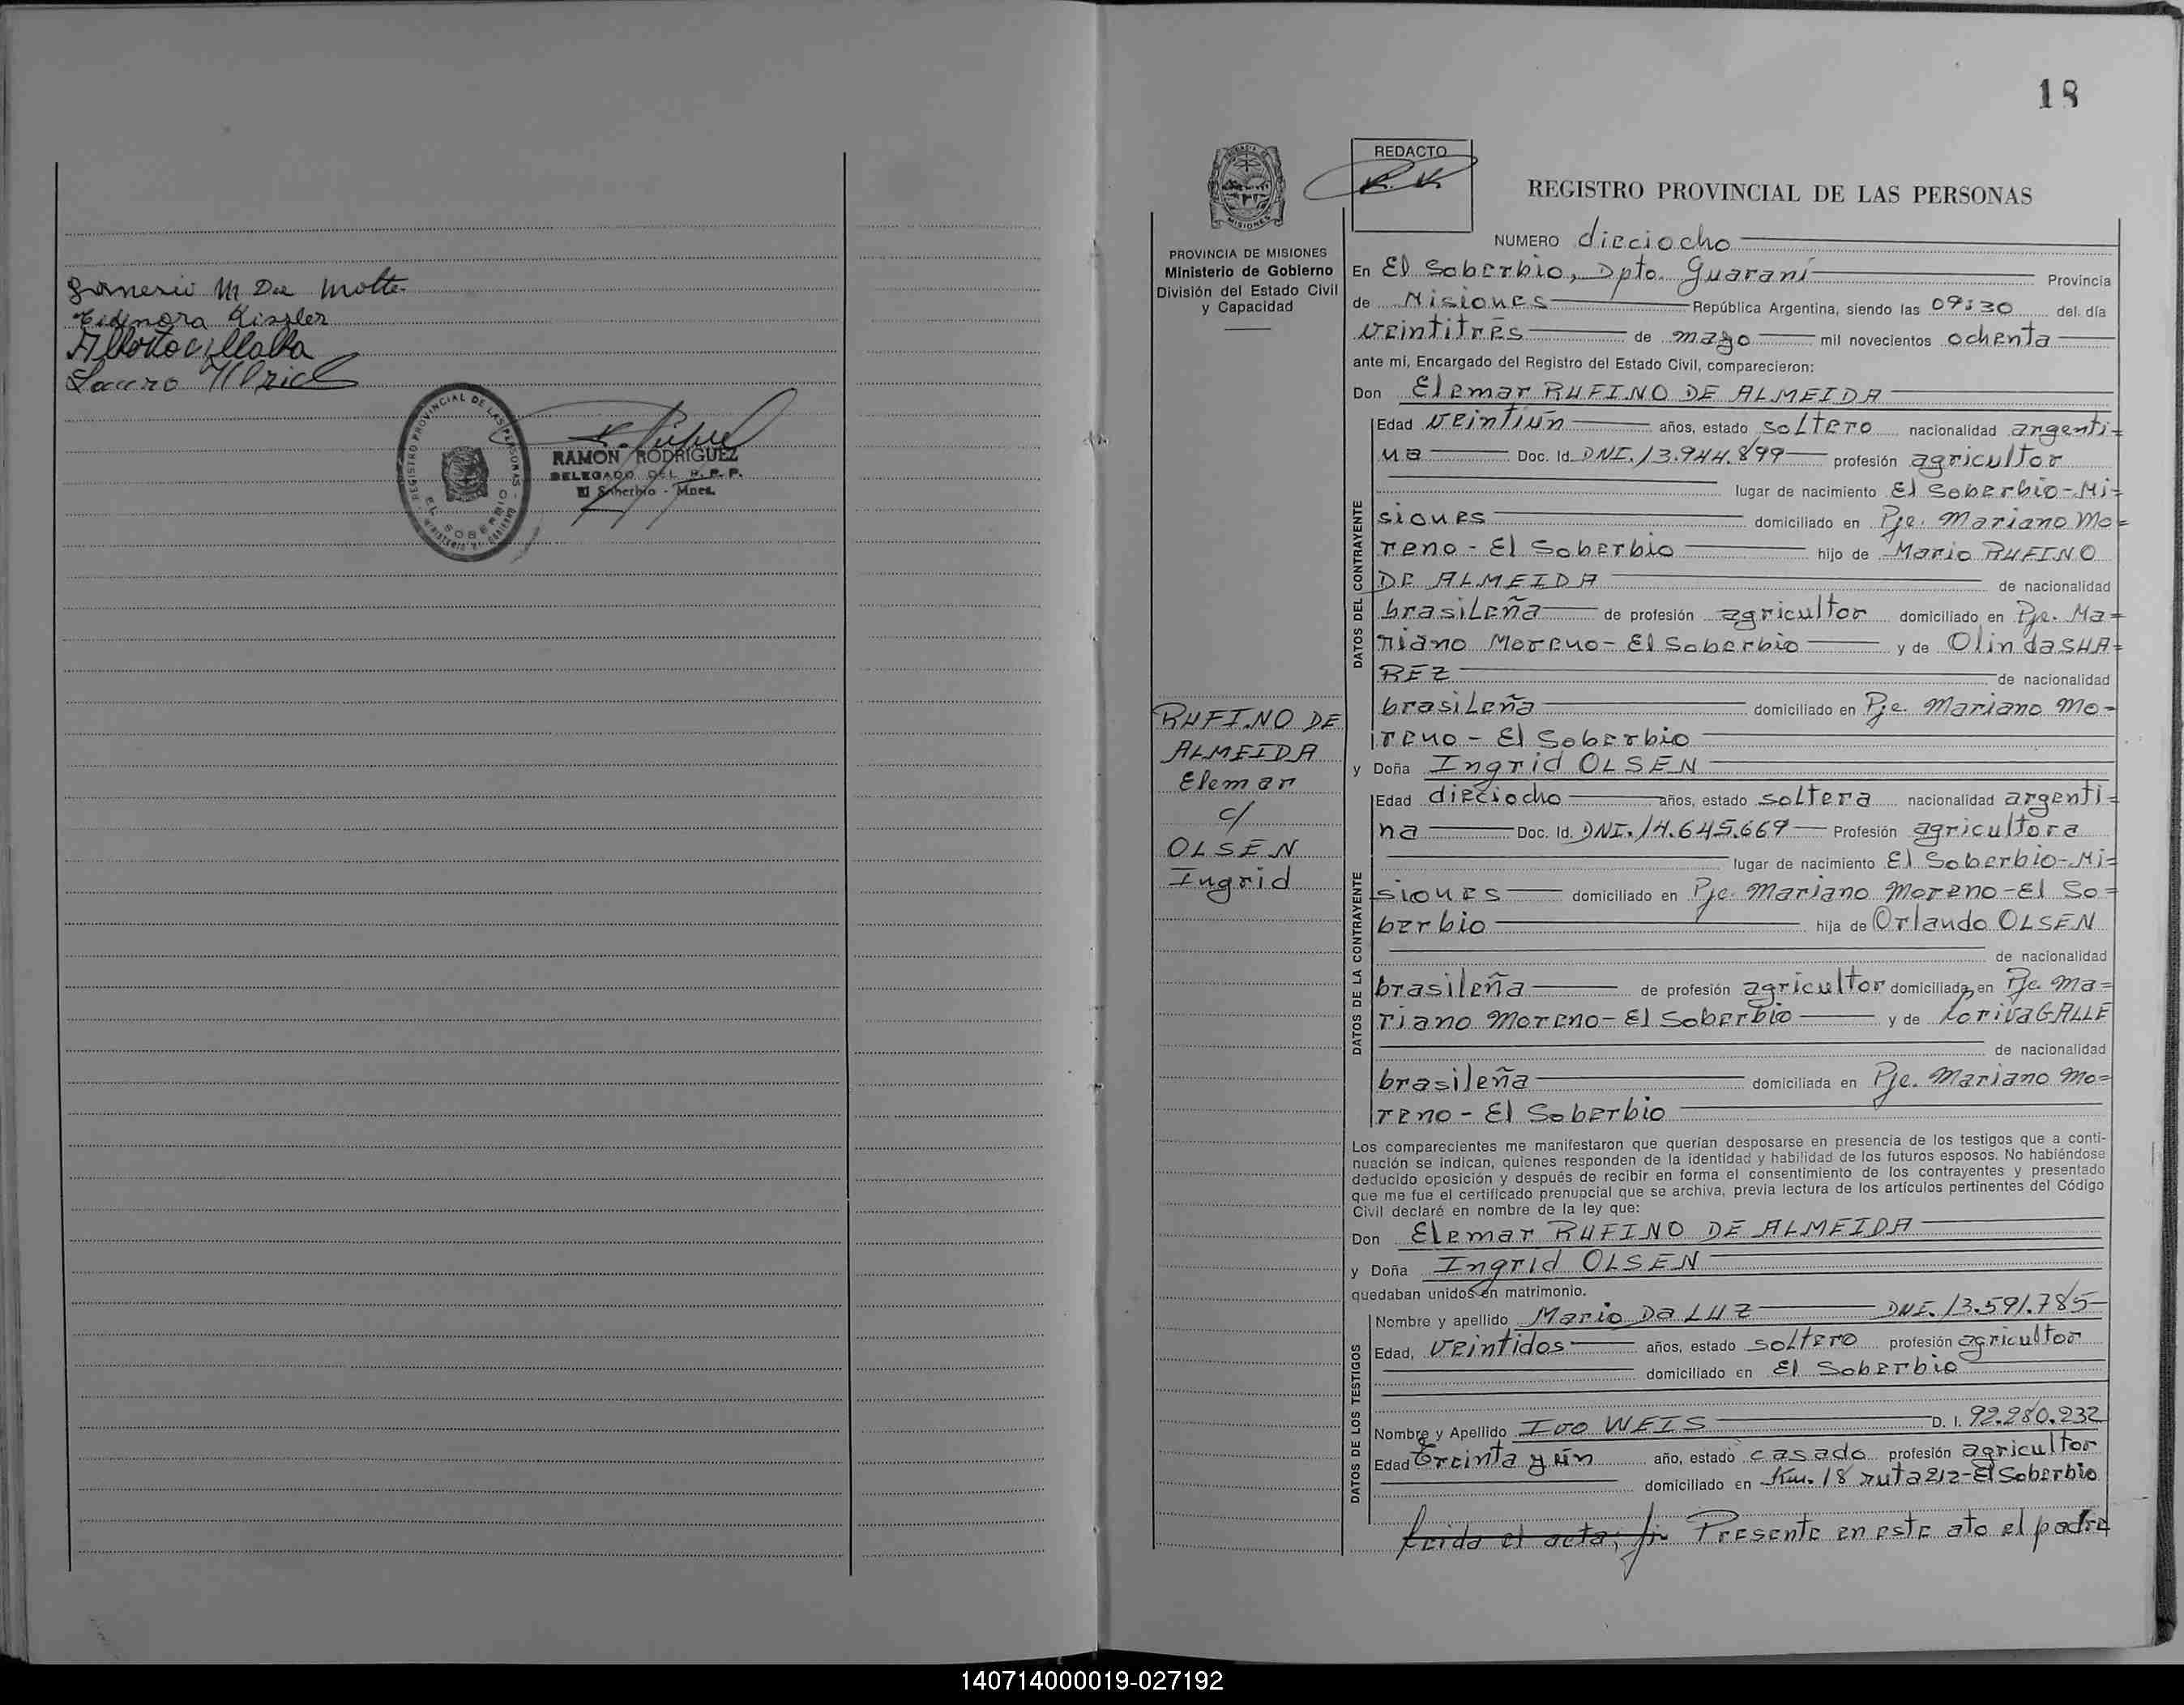 M Da Motte
Eidinora Kissler
Lauro Ulrich
REGISTRO PROVINCIAL DE LAS PERSONAS
EL SOBERBIO
RAMON RODRIGUEZ
DELEGADO DEL R. P. P.
El Soberbio - Mnes.
18
REDACTO
REGISTRO PROVINCIAL DE LAS PERSONAS
MISIONES
PROVINCIA DE MISIONES
Ministerio de Gobierno
División del Estado Civil
y Capacidad
RUFINO DE
ALMEIDA
Elemar
c/
OLSEN
Ingrid
NUMERO dieciocho
En El Soberbio, Dpto. Guaraní Provincia
de Misiones República Argentina, siendo las 09:30 del día
veintitrés de mayo mil novecientos ochenta
ante mi, Encargado del Registro del Estado Civil, comparecieron:
Don Elemar RUFINO DE ALMEIDA
DATOS DEL CONTRAYENTE
Edad veintiún años, estado soltero nacionalidad argenti=
na Doc. Id. DNI. 13.944.899 profesión agricultor
lugar de nacimiento El Soberbio-Mi=
siones domiciliado en Pje. Mariano Mo=
reno - El Soberbio hijo de Mario RUFINO
DE ALMEIDA de nacionalidad
brasileña de profesión agricultor domiciliado en Pje. Ma=
riano Moreno - El Soberbio y de Olinda SUA=
REZ de nacionalidad
brasileña domiciliado en Pje. Mariano Mo-
reno - El Soberbio
y Doña Ingrid OLSEN
DATOS DE LA CONTRAYENTE
Edad dieciocho años, estado soltera nacionalidad argenti=
na Doc. Id. DNI. 14.645.669 Profesión agricultora
lugar de nacimiento El Soberbio-Mi=
siones domiciliado en Pje. Mariano Moreno-El So=
berbio hija de Orlando OLSEN
de nacionalidad
brasileña de profesión agricultor domiciliada en Pje. Ma=
riano Moreno - El Soberbio y de Loriva GALLE
de nacionalidad
brasileña domiciliada en Pje. Mariano Mo=
reno - El Soberbio
Los comparecientes me manifestaron que querían desposarse en presencia de los testigos que a conti-
nuación se indican, quienes responden de la identidad y habilidad de los futuros esposos. No habiéndose
deducido oposición y después de recibir en forma el consentimiento de los contrayentes y presentado
que me fue el certificado prenupcial que se archiva, previa lectura de los artículos pertinentes del Código
Civil declaré en nombre de la ley que:
Don Elemar RUFINO DE ALMEIDA
y Doña Ingrid OLSEN
quedaban unidos en matrimonio.
DATOS DE LOS TESTIGOS
Nombre y apellido Mario Da LUZ DNI. 13.591.785
Edad, veintidos años, estado soltero profesión agricultor
domiciliado en El Soberbio
Nombre y Apellido Ivo WEIS D. I. 92.280.232
Edad treinta y ún año, estado casado profesión agricultor
domiciliado en Km. 18 ruta 212-El Soberbio
Leida el acta; fir Presente en este ato el padre
140714000019-027192